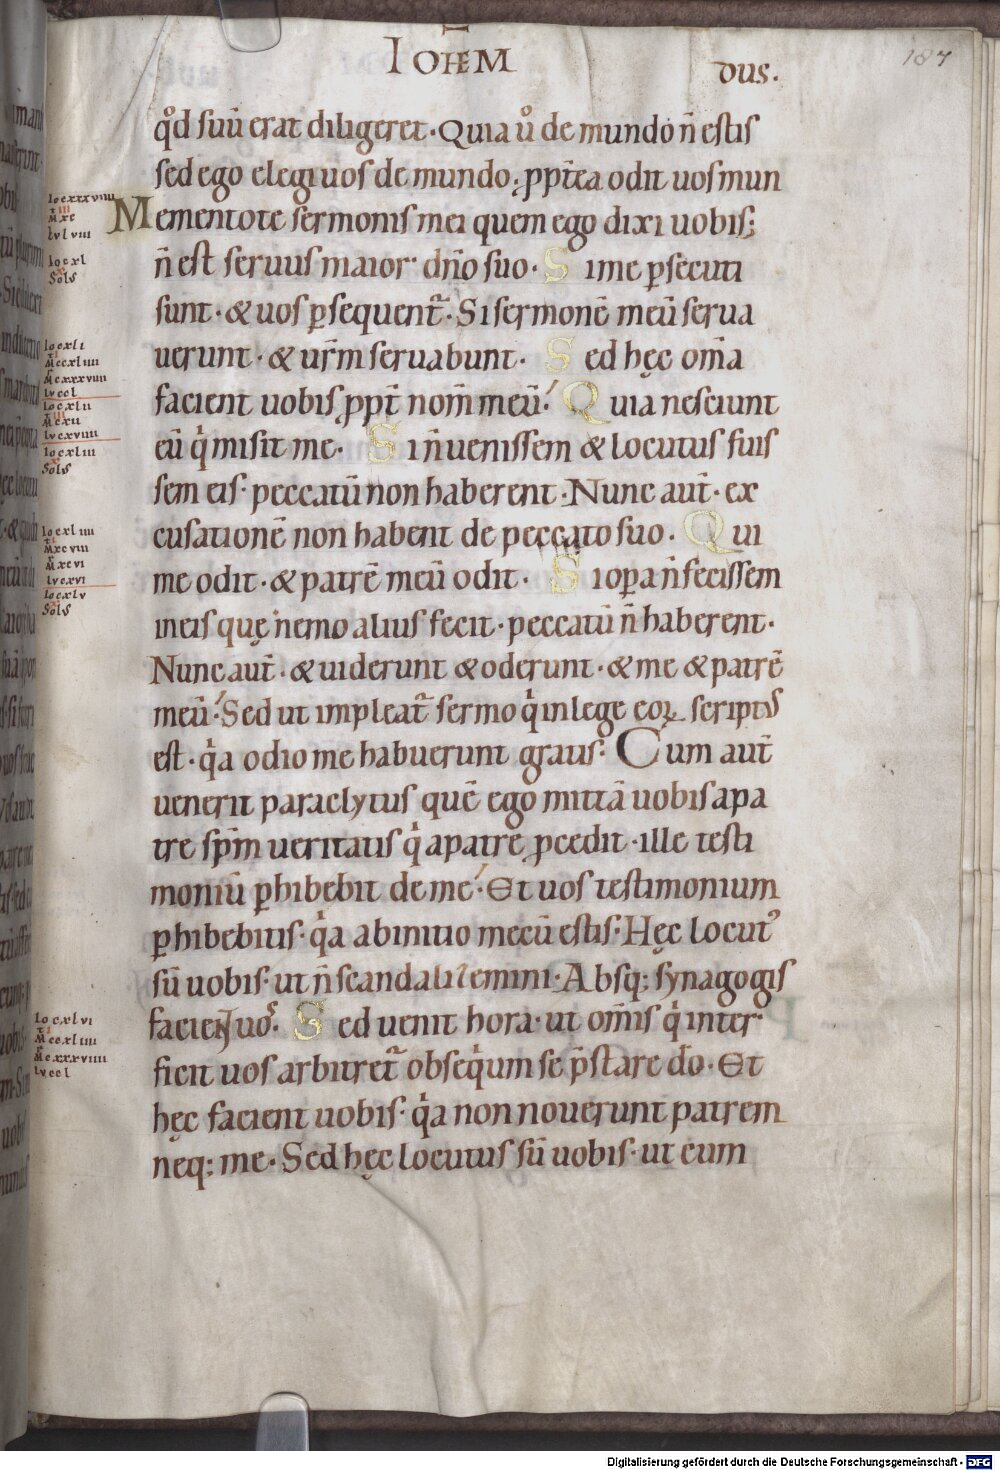 IOHEM
187
dus.
qd̊ suū erat diligeret. Quia ů de mundo n̄ estis
sed ego elegi uos de mundo; ꝓpt̄ea odit uos mun
Mementote sermonis mei quem ego dixi uobis;
n̄ est seruus maior dn̄o suo. Si me ꝑsecuti
sunt. & uos ꝑsequent̄. Si sermonē meū serua
uerunt. & ur̄m seruabunt. Sed hęc om̄a
facient uobis ꝓpt̄ nom̄ meū. Quia nesciunt
eū qͥ misit me. Si n̄ uenissem & locutus fuis
sem eis. peccatū non haberent. Nunc aut̄. ex
cusationē non habent de peccato suo. Qui
me odit. & patrē meū odit. Si opa n̄ fecissem
in eis quę nemo alius fecit. peccatū n̄ haberent.
Nunc aut̄. & uiderunt & oderunt. & me & patrē
meū. Sed ut impleat̄ sermo qͥ in lege eoꝝ scriptus
est. qͣa odio me habuerunt gratis. Cum aut̄
uenerit paraclytus quē ego mittā uobis a pa
tre sp̄m ueritatis qͥ a patre ꝓcedit. ille testi
moniū ꝑhibebit de me. Et uos testimonium
ꝑhibebitis. qͣa ab initio mecū estis. Hęc locutꝰ
sū uobis. ut n̄ scandalizemini. Absq; synagogis
facient uos. Sed uenit hora. ut om̄is qͥ inter
ficit uos arbitret̄ obseqͥum se p̄stare dō. Et
hęc facient uobis. qͣa non nouerunt patrem
neq; me. Sed hęc locutus sū uobis. ut cum
Io cxxxviiii
Mxc
Lvl viii
Io cxl
Solus
Io cxli
M ccxliiii
Mc xxxviiii
Lv ccl
Io cxlii
M cxii
Lv cxviiii
Io cxliii
Solus
Io cxliiii
M xcviii
M xcvi
Lv cxvi
Io cxlv
Solus
Io cxlvi
M ccxliiii
Mc xxxviiii
Lv ccl
Digitalisierung gefördert durch die Deutsche Forschungsgemeinschaft - DFG